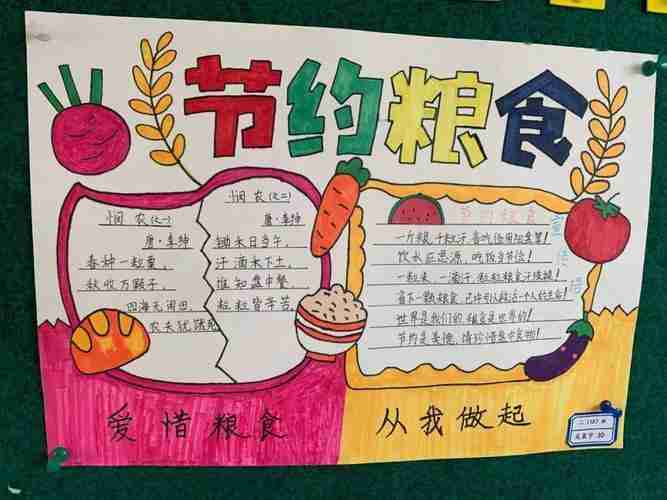 节约粮食
悯农(之一)
唐·李坤
春种一粒粟，
秋收万颗子，
四海无闲田，
农夫犹饿死
悯农(之二)
唐·李坤
锄禾日当午，
汗滴禾下土。
谁知盘中餐，
粒粒皆辛苦。
节约粮食
宣传语
一斤粮，千粒汗，
饮水应思源，吃饭当节俭！
一粒米，一滴汗，粒粒粮食汗珠换！
省下一颗粮食，已许可以救活一个人的生命！
世界是我们的，粮食是世界的！
节约是美德，请珍惜盘中食物！
爱惜粮食
从我做起